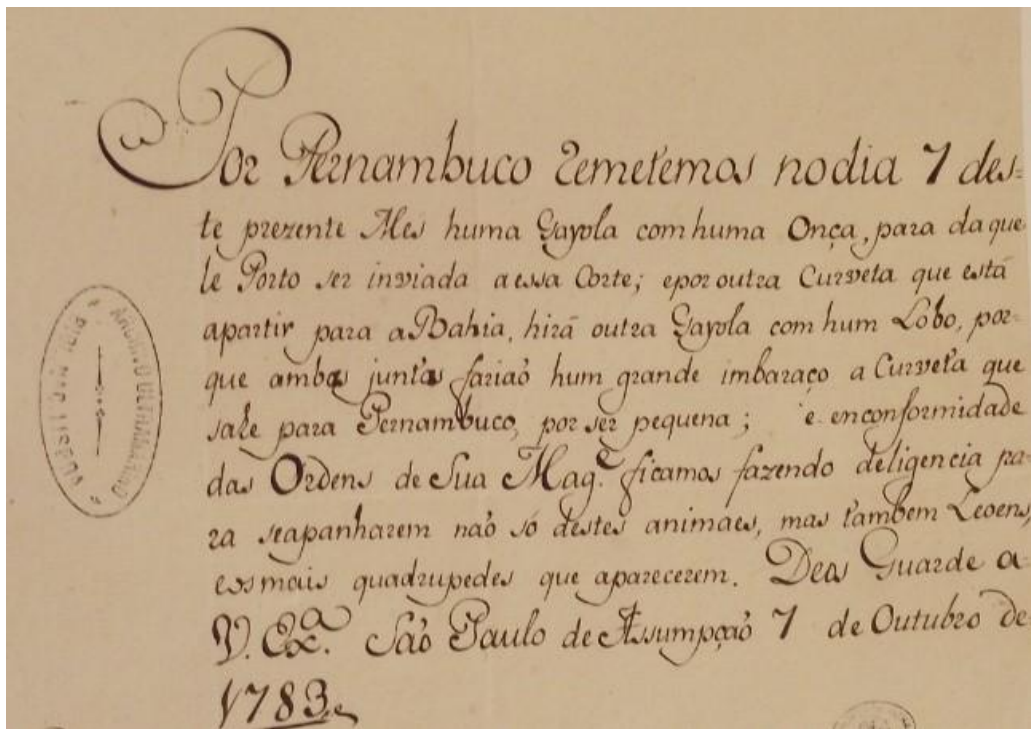 Por Pernambuco remetemos nodia 7 des=
te prezente Mes huma Gayola comhuma Onça, para daque
le Porto ser inviada aessa Corte; eporoutra Curveta que está
apartir para aBahia, hirá outra Gayola com hum Lobo, por-
que ambas juntas fariaõ hum grande imbaraço a Curveta que
sahe para Pernambuco, por ser pequena; e enconformidade
das Ordens de Sua Mag.e ficamos fazendo deligencia pa-
ra seapanharem naõ só destes animaes, mas tambem Leoens,
eosmais quadrupedes que aparecerem. Deos Guarde a
V. Ex.a Saõ Paulo de Assumpçaõ 7 de Outubro de
1783
ARCHIVO ULTRAMARINO